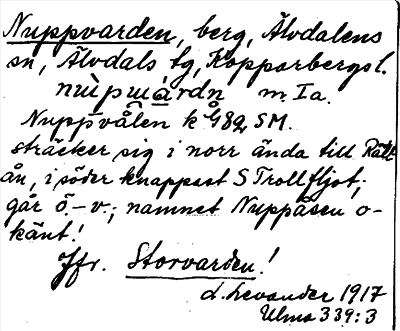 Nuppvarden, berg, Älvdalens
sn, Älvdals tg, Kopparbergs l.
nùpwàrdn m. Ia.
Nuppvålen k 98 q, SM.
sträcker sig i norr ända till Rät-
ån, i söder knappast S Trollfljot;
går ö.-v.; namnet Nuppåsen o-
känt!
Jfr. Storvarden!
L. Levander 1917
Ulma 339:3